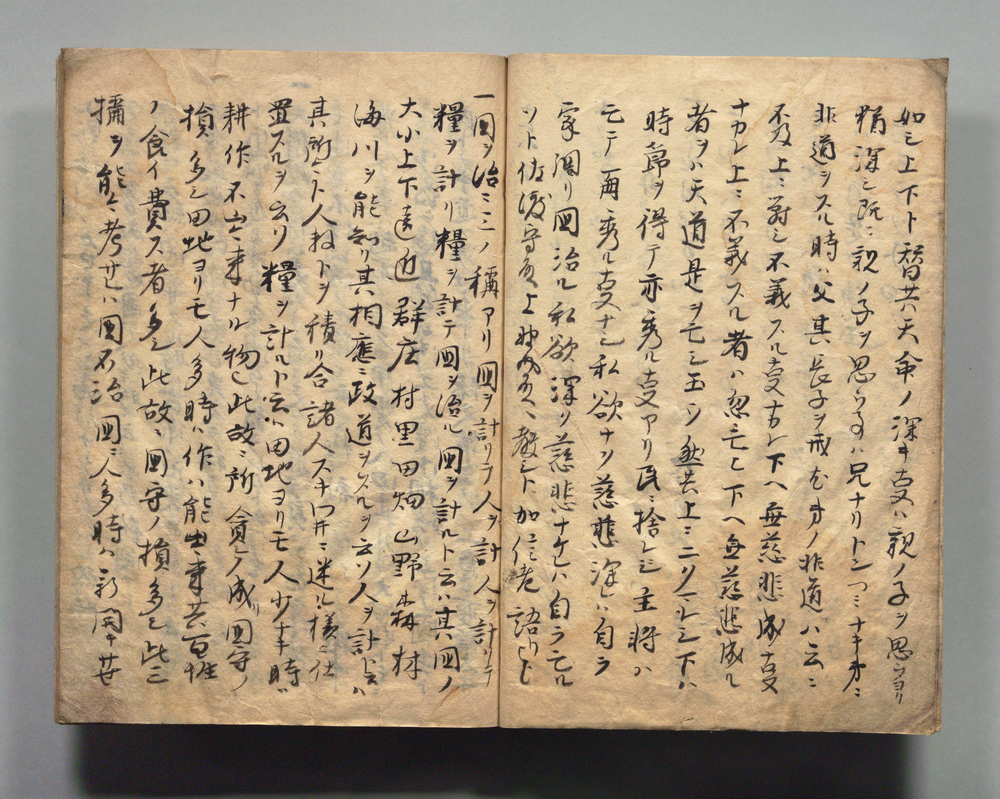 如シ上下ト替共天命ノ深キ支ハ親ノ子ヲ思フヨリ
猶深シ既ニ親ノ子ヲ思ウハ兄ナリトシツミナキ弟ニ
非道ヲスル時ハ父其長子ヲ戒む弟ノ非道ハ云ニ
不及上ニ対シ不義スル支ナカレ下ヘ無慈悲成支
ナカレ上ニ不義スル者ハ忽亡ヒ下ヘ無慈悲成ル
者ヲハ天道是ヲ亡シ玉ソ無共上ニニクマレシ下ハ
時節ヲ得テ亦秀ル支アリ民ニ捨ラレシ主将ハ
亡テ再秀ル支ナシ私欲ナク慈悲深ハ自ラ
家調リ国治ル私欲深ク慈悲ナケレハ自ラ亡ル
ソト佐渡守殿上野殿ヘ教シト加信老語リシ
一国ヲ治ニ三ノ稱アリ国ヲ計リテ人ヲ計人ヲ計リテ
糧ヲ計リ糧ヲ計テ国ヲ治ル国ヲ計ルト云ハ其国ノ
大小上下遠近群庄村里田畑山野森林
海川ヲ能知リ其相應ニ政道ヲスルヲ云ソ人ヲ計ト云ハ
其所ニト人数トヲ積リ合諸人スキワ井ニ迷ヌ様ニ仕
置スルヲ云リ糧ヲ計ルト云ハ田地ヨリモ人少ナキ時ハ
耕作不出来ナル物也此故ニ所貧シク成リ国守ノ
損多シ田地ヨリモ人多時ハ作ハ能出来共百姓
ノ食イ費ス者多シ此故ニ国守ノ損多シ此二
備ヲ能ク考サレハ国不治国ニ人多時ハ新開キサセ